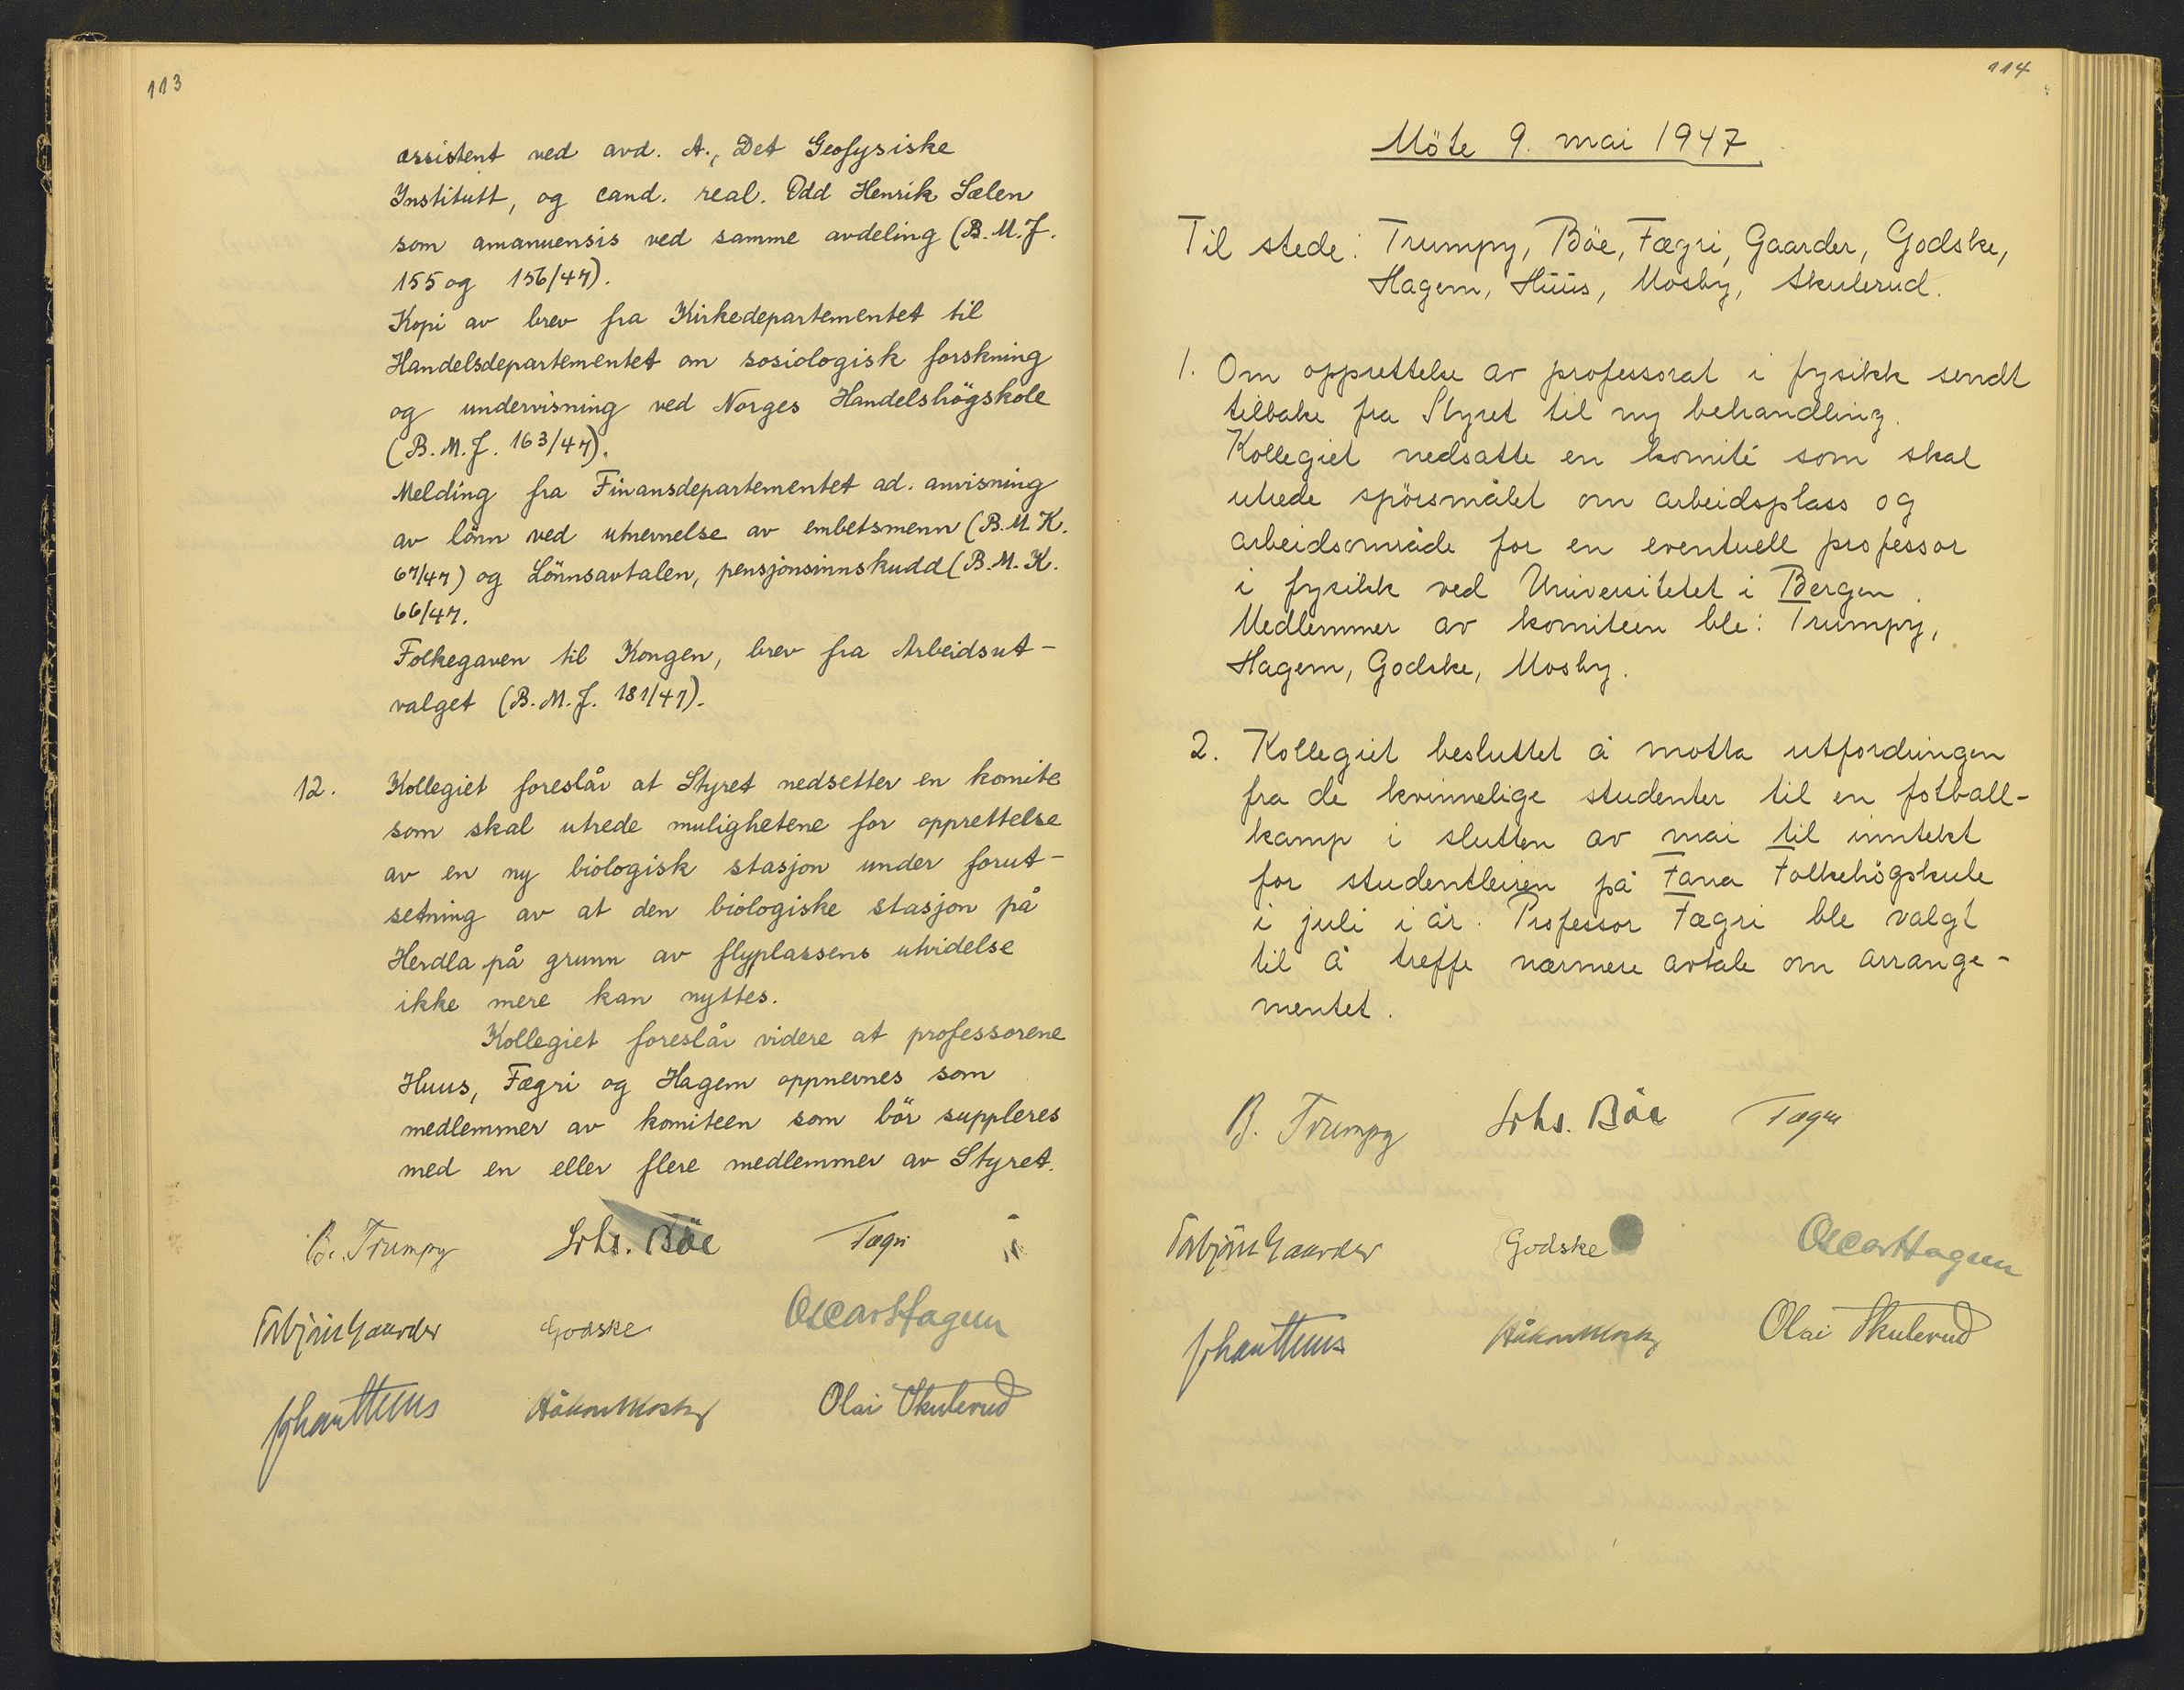 113
assistent ved avd. A., Det Geofysiske
Institutt, og cand. real. Odd Henrik Sælen
som amanuensis ved samme avdeling (B.M.J.
155 og 156/47).
Kopi av brev fra Kirkedepartementet til
Handelsdepartementet om sosiologisk forskning
og undervisning ved Norges Handelshögskole
(B.M.J. 163/47).
Melding fra Finansdepartementet ad. anvisning
av lönn ved utnevnelse av embetsmenn (B.M.K.
67/47) og Lönnsavtalen, pensjonsinnskudd (B.M.K.
66/47.
Folkegaven til Kongen, brev fra Arbeidsut-
valget (B.M.J. 181/47).
12. Kollegiet foreslår at Styret nedsetter en komite
som skal utrede mulighetene for opprettelse
av en ny biologisk stasjon under forut-
setning av at den biologiske stasjon på
Herdla på grunn av flyplassens utvidelse
ikke mere kan nyttes.
Kollegiet foreslår videre at professorene
Huus, Fægri og Hagem oppnevnes som
medlemmer av komiteen som bör suppleres
med en eller flere medlemmer av Styret.
B. Trumpy Johs. Böe Fægri
Torbjörn Gaarder Godske Oscar Hagem
Johan Huus Håkon Mosby Olai Skulerud
114
Möte 9. mai 1947
Til stede: Trumpy, Böe, Fægri, Gaarder, Godske,
Hagem, Hüüs, Mosby, Skulerud.
1. Om opprettelse av professorat i fysikk sendt
tilbake fra Styret til ny behandling.
Kollegiet nedsatte en komité som skal
utrede spörsmålet om arbeidsplass og
arbeidsområde for en eventuell professor
i fysikk ved Universitetet i Bergen.
Medlemmer av komiteen ble: Trumpy,
Hagem, Godske, Mosby.
2. Kollegiet besluttet å motta utfordringen
fra de kvinnelige studenter til en fotball-
kamp i slutten av mai til inntekt
for studentleiren på Fana Folkehögskule
i juli i år. Professor Fægri ble valgt
til å treffe nærmere avtale om arrange-
mentet.
B. Trumpy Johs. Böe Fægri
Torbjörn Gaarder Godske Oscar Hagem
Johan Huus Håkon Mosby Olai Skulerud